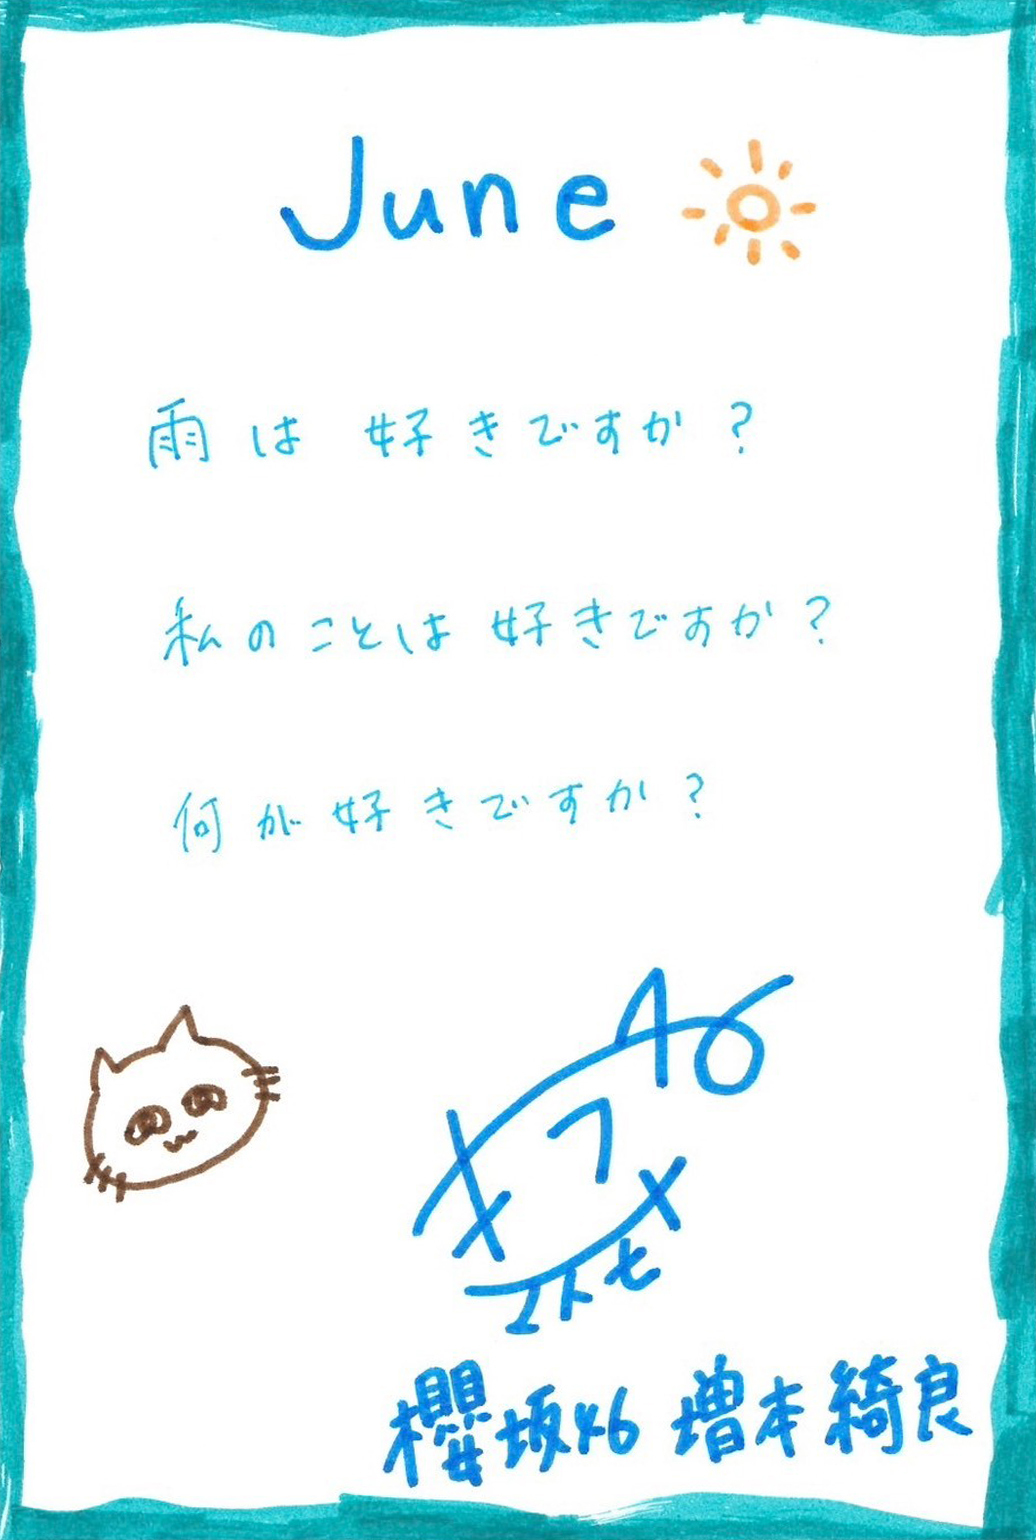 June
雨は 好きですか?
私のことは 好きですか?
何が好きですか?
櫻坂46 増本綺良